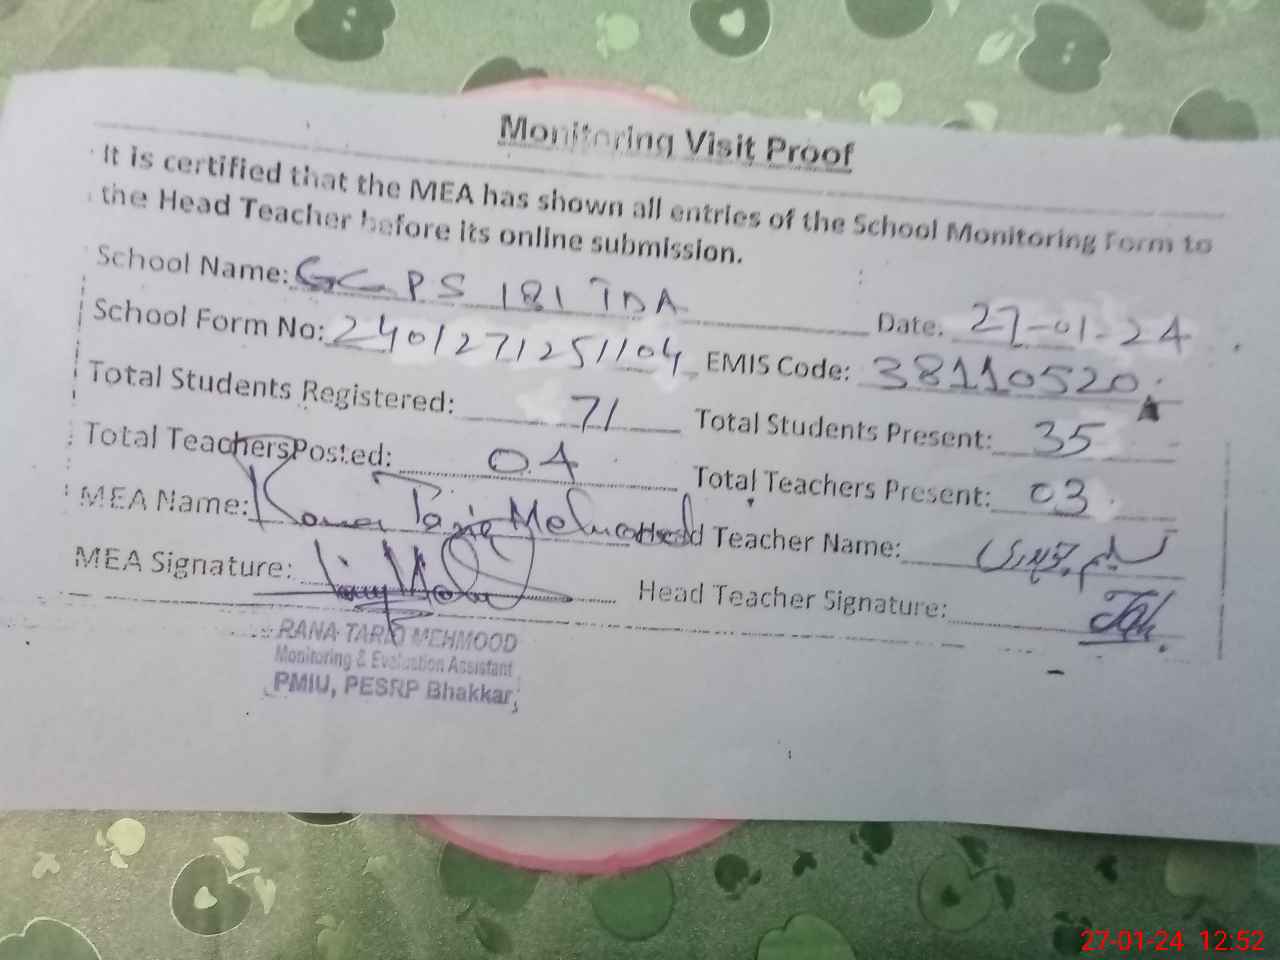 Monitoring Visit Proof
It is certified that the MEA has shown all entries of the School Monitoring Form to
the Head Teacher before its online submission.
School Name: GGPS 181 TDA Date. 27-01-24
School Form No: 2401271251104 EMIS Code: 38110520
Total Students Registered: 71 Total Students Present: 35
Total TeachersPosted: 04 Total Teachers Present: 03
MEA Name: Rana Tariq Mehmood Head Teacher Name:
MEA Signature: Head Teacher Signature:
RANA TARIQ MEHMOOD
Monitoring & Evaluation Assistant
PMIU, PESRP Bhakkar
27-01-24 12:52